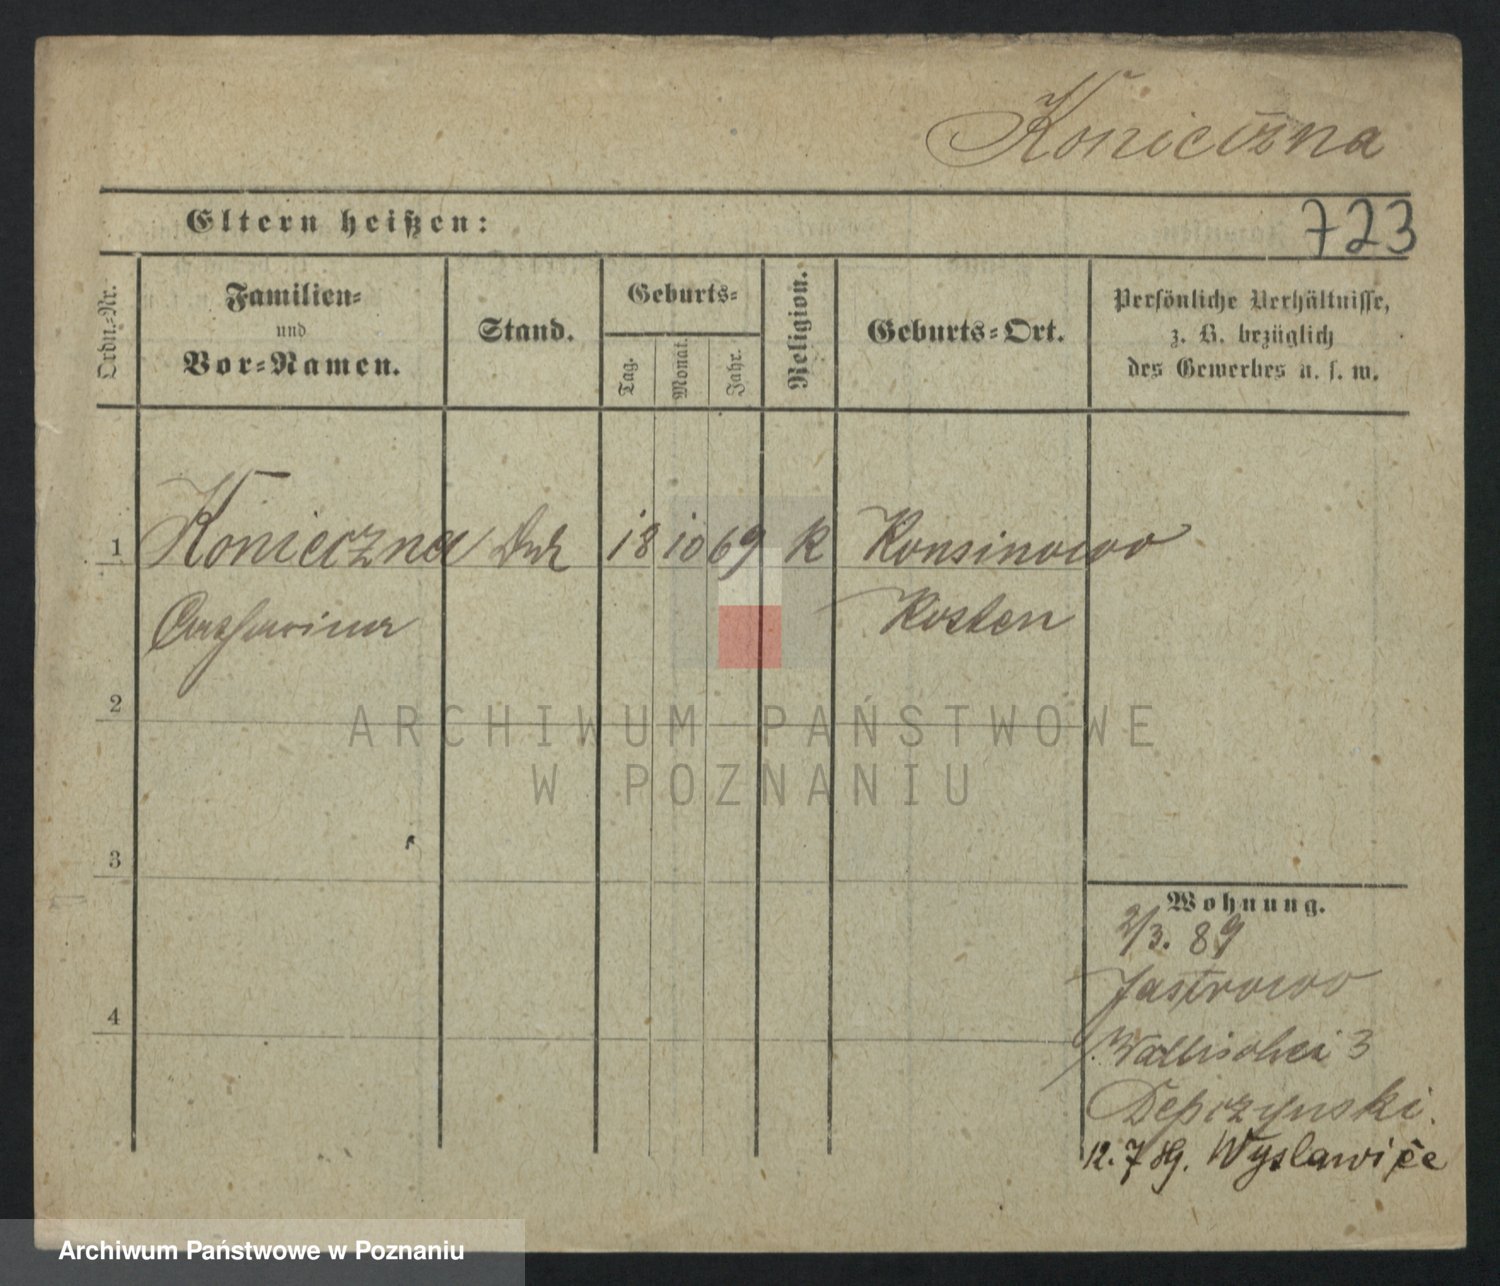 Konieczna
723
Eltern heißen:
Ordn.-Nr.
Familien-
und
Vor-Namen.
Stand.
Geburts-
Tag.
Monat.
Jahr.
Religion.
Geburts-Ort.
Persönliche Verhältnisse,
z. B. bezüglich
des Gewerbes u. s. w.
1 Konieczna 18 10 69 K Konsinowo
Catharina Kosten
2
3
4
Wohnung.
2/3. 89
Jastrowo
Wallischei 3
Depczynski.
12. 7 89. Wyslawice
ARCHIWUM PAŃSTWOWE
W POZNANIU
Archiwum Państwowe w Poznaniu